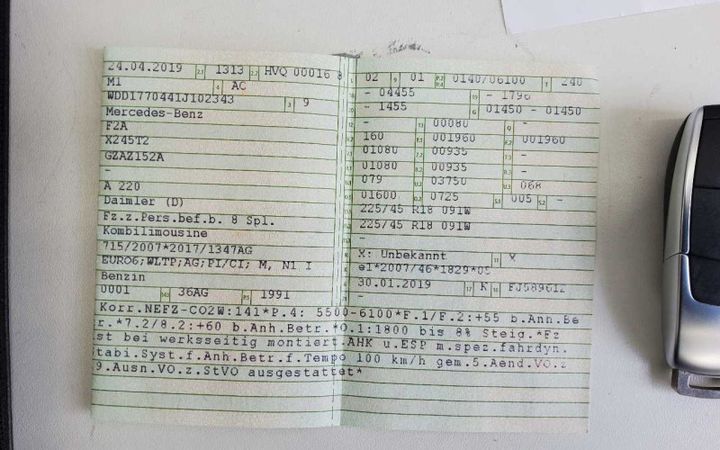 24.04.2019 2.1 1313 2.2 HVQ 00016 8
M1 4 AC
WDD1770441J102343 3 9
Mercedes-Benz
F2A
X245T2
GZAZ152A
-
A 220
Daimler (D)
Fz.z.Pers.bef.b. 8 Spl.
Kombilimousine
715/2007*2017/1347AG
EURO6;WLTP;AG;PI/CI; M, N1 I
Benzin
0001 36AG 1991
02 9 01 0140/06100 240
- 04455 - 1796
- 1455 01450 - 01450
- 00080 -
160 001960 001960
01080 00935 -
01080 00935 -
079 03750 068
01600 0725 005 -
225/45 R18 091W
225/45 R18 091W
-
X: Unbekannt
e1*2007/46*1829*05
30.01.2019 17 K 16 FJ589612
Korr.NEFZ-CO2W:141*P.4: 5500-6100*F.1/F.2:+55 b.Ann.Be
r.*7.2/8.2:+60 b.Anh.Betr.*O.1:1800 bis 8% Steig.*Fz
st bei werksseitig montiert.AHK u.ESP m.spez.fahrdyn.
Stabi.Syst.f.Anh.Betr.f.Tempo 100 km/h gem.5.Aend.VO.z
9.Ausn.VO.z.StVO ausgestattet*